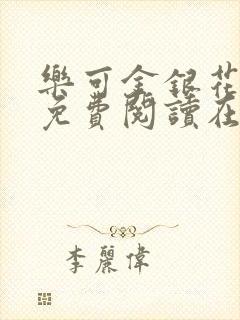 樂可金銀花
免費閱讀在
李麗偉